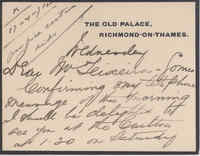 THE OLD PALACE,
RICHMOND-ON-THAMES.
Wednesday
Dear Mr Teixeira-Gomes
Confirming my telephone
message of this morning
I shall be delighted to
see you at the Carlton
at 1.30 on Saturday